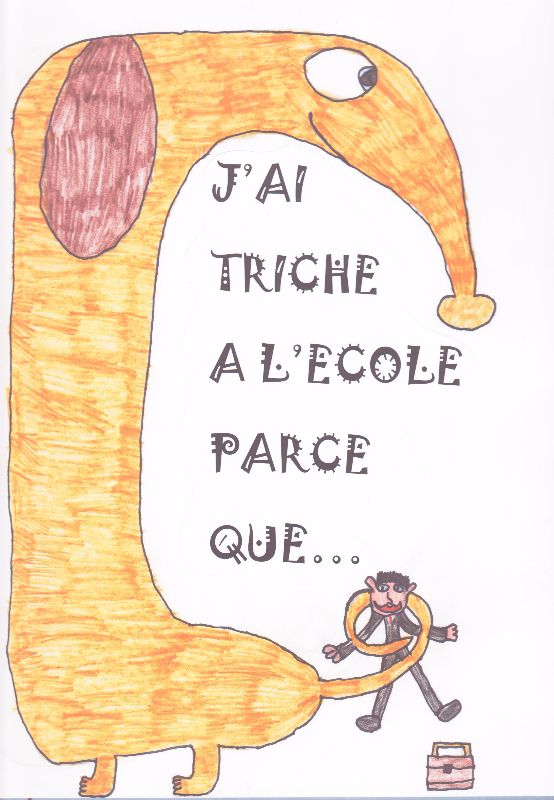 J'AI
TRICHE
A L'ECOLE
PARCE
QUE...